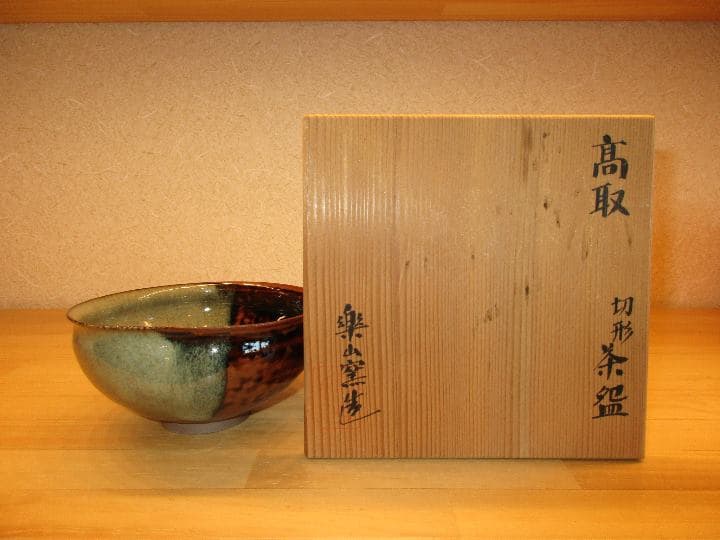 髙取
切形 茶盌
樂山窯造